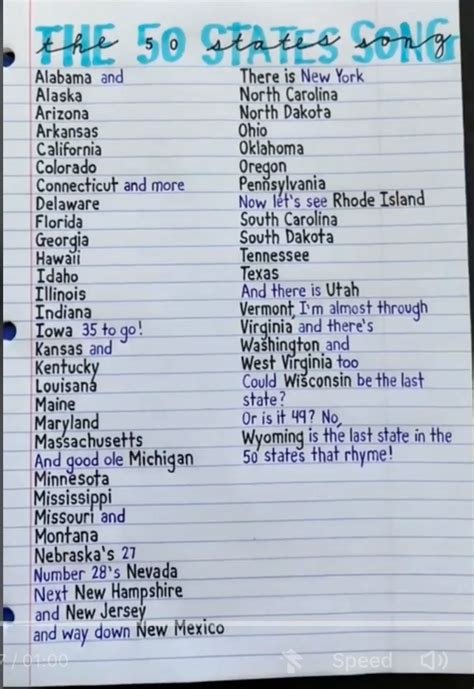 THE 50 STATES SONG
the 50 states song
Alabama and
Alaska
Arizona
Arkansas
California
Colorado
Connecticut and more
Delaware
Florida
Georgia
Hawaii
Idaho
Illinois
Indiana
Iowa 35 to go!
Kansas and
Kentucky
Louisana
Maine
Maryland
Massachusetts
And good ole Michigan
Minnesota
Mississippi
Missouri and
Montana
Nebraska's 27
Number 28's Nevada
Next New Hampshire
and New Jersey
and way down New Mexico
There is New York
North Carolina
North Dakota
Ohio
Oklahoma
Oregon
Pennsylvania
Now let's see Rhode Island
South Carolina
South Dakota
Tennessee
Texas
And there is Utah
Vermont, I'm almost through
Virginia and there's
Washington and
West Virginia too
Could Wisconsin be the last
state?
Or is it 49? No,
Wyoming is the last state in the
50 states that rhyme!
7/01:00
Speed